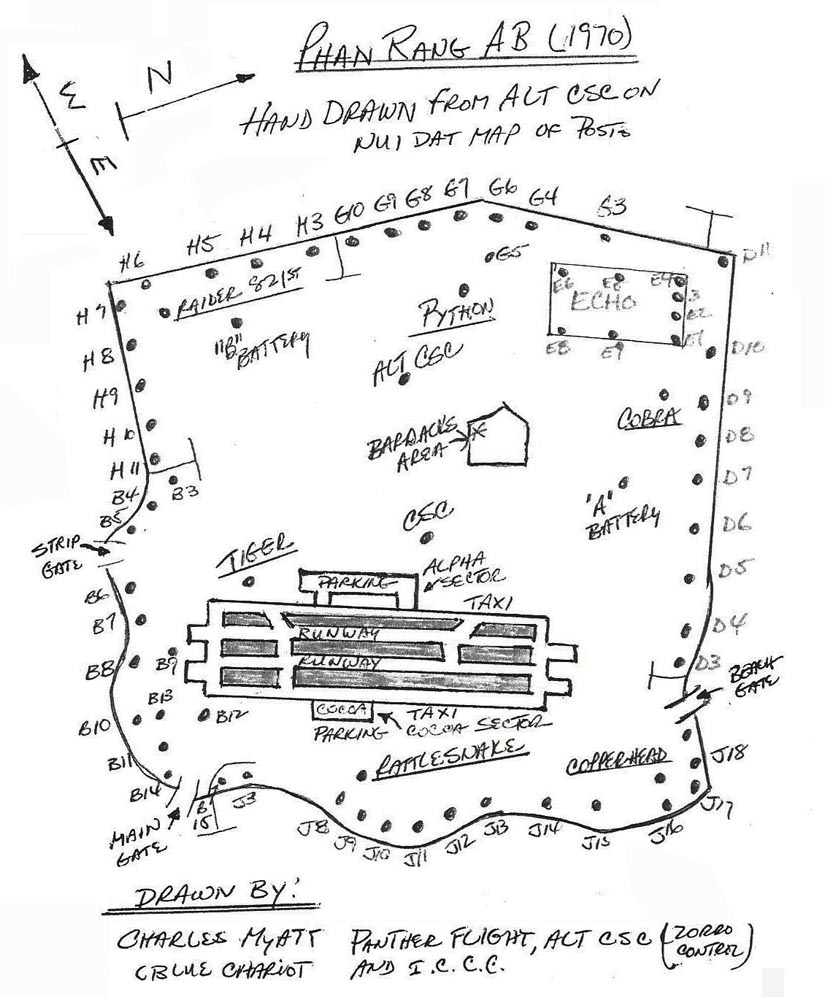 PHAN RANG AB (1970)
HAND DRAWN FROM ALT CSC ON
NUI DAT MAP OF POSTS
W
N
E
H6
H5
H4
H3
G10
G9
G8
G7
G6
G4
G3
D11
G5
H7
RAIDER 821ST
"B"
BATTERY
PYTHON
E6
E5
E4
3
E2
E1
ECHO
E8
E9
H8
ALT CSC
D10
H9
COBRA
D9
H10
BARRACKS
AREA
D8
H11
B3
B4
D7
B5
'A'
BATTERY
CSC
D6
STRIP
GATE
TIGER
ALPHA
SECTOR
D5
PARKING
TAXI
B6
B7
RUNWAY
D4
B8
B9
RUNWAY
D3
BEACH
GATE
B13
B12
COCOA
TAXI
B10
PARKING
COCOA SECTOR
RATTLESNAKE
COPPERHEAD
J18
B11
B14
MAIN
GATE
B
15
J3
J8
J9
J10
J11
J12
J13
J14
J15
J16
J17
DRAWN BY:
CHARLES MYATT PANTHER FLIGHT, ALT CSC (ZORRO
CONTROL)
CBLUE CHARIOT AND I.C.C.C.